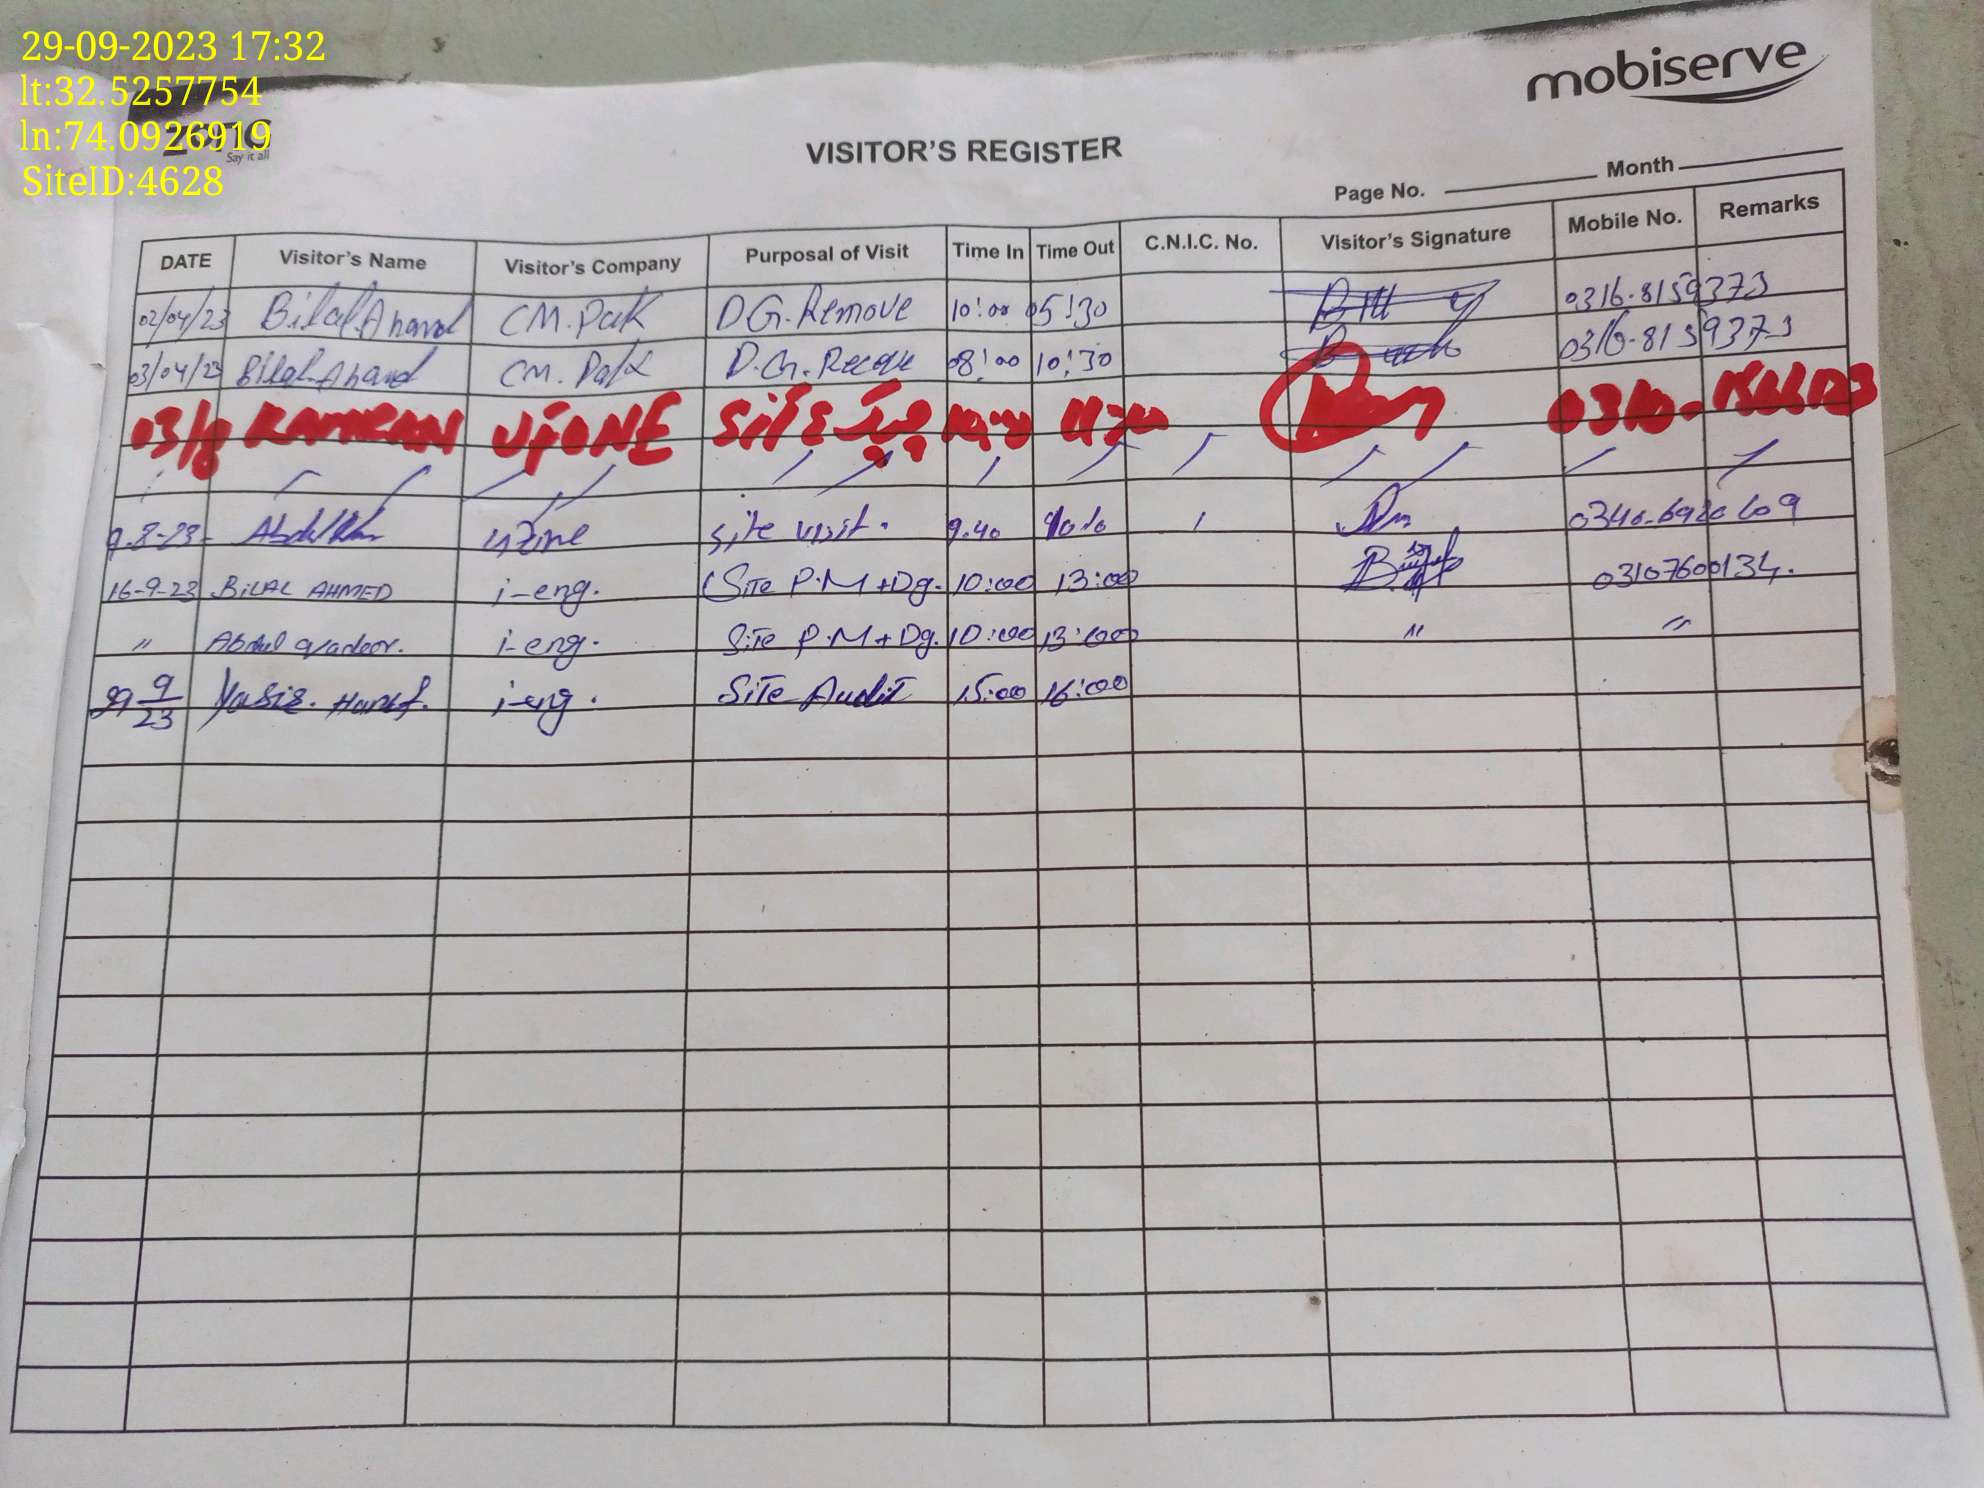 29-09-2023 17:32
lt:32.5257754
ln:74.0926919
SiteID:4628
Say it all
mobiserve
VISITOR'S REGISTER
Page No. Month
DATE Visitor's Name Visitor's Company Purposal of Visit Time In Time Out C.N.I.C. No. Visitor's Signature Mobile No. Remarks
02/04/23 Bilal.Ahmad CM.Pak DG.Remove 10:00 05:30 0316.8159373
03/04/23 Bilal.Ahmad CM.Pak D.G. 08:00 10:30 0316.8159373
03/8 KAMRAN UFONE SITE
9-8-23 Ufone site visit. 9.40
16-9-23 BILAL AHMED i-eng. Site P.M+Dg. 10:00 13:00 03107600134.
" Abdul i-eng. Site P.M+Dg. 10:00 13:00 " "
29 9/23 i-eng. Site Audit 15:00 16:00